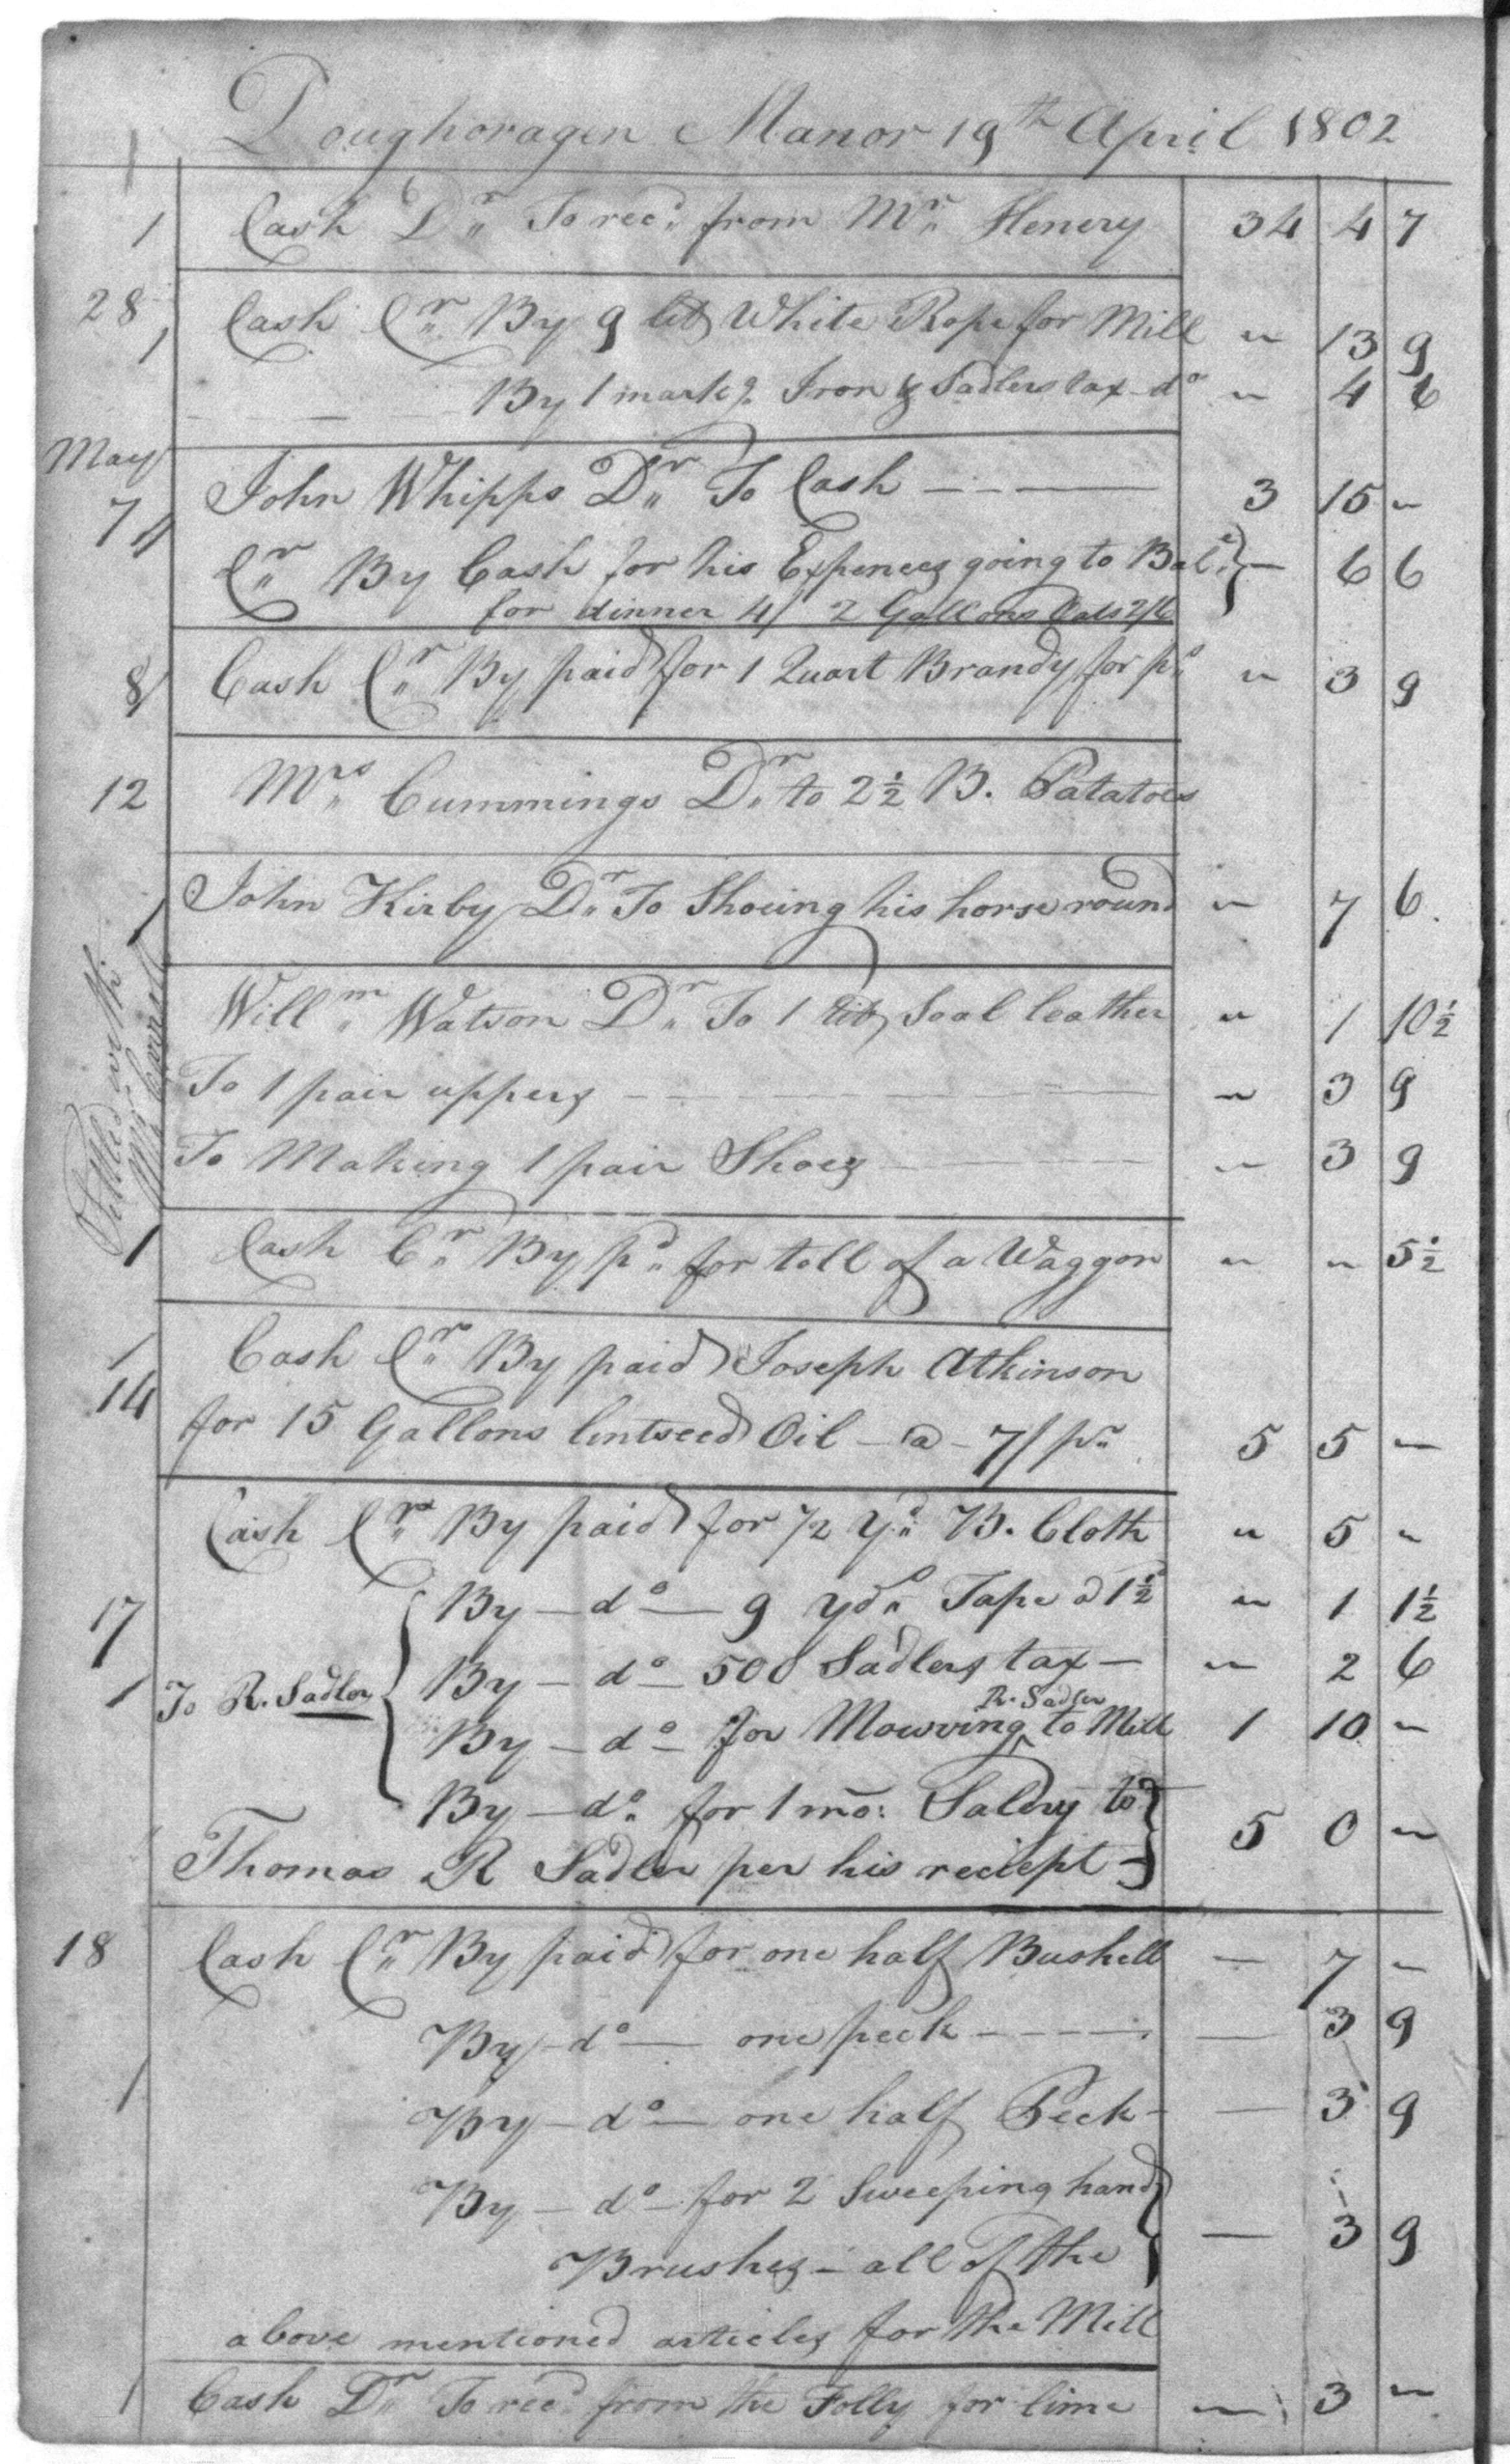 Doughoragen Manor 19th April 1802
1 Cash Dr To recd from Mr Henery 34 4 7
28 1 Cash Cr By 9 lb White Rope for Mill " 13 9
By 1 mark g Iron & Sadlers tax do " 4 6
May
7 John Whipps Dr To Cash 3 15 "
Cr By Cash for his Expences going to Balt } — 6 6
for dinner 4/ 2 Gallons Oats 2/6
8 Cash Cr By paid for 1 Quart Brandy for po " 3 9
12 Mrs Cummings Dr to 2½ B. Patatoes
1 John Kirby Dr To Shoeing his horse round " 7 6
Settled with
Willm Watson Dr To 1 lb Soal leather " 1 10½
To 1 pair uppers " 3 9
To Making 1 pair Shoes " 3 9
1 Cash Cr By pd for toll of a Waggon " " 5½
1 14 Cash Cr By paid Joseph Atkinson
for 15 Gallons lintseed Oil — @ — 7/ pr 5 5 —
Cash Cr By paid for 1/2 Yd B. Cloth " 5 "
17 By — do — 9 Yds Tape @ 1½ " 1 1½
1 To R. Sadler { By — do — 500 Sadlers tax — " 2 6
R. Sadler
By — do — for Mowving ^ to Mill 1 10 "
By — do for 1 mo: Salery to }
Thomas R Sadler per his reciept } 5 0 "
18 Cash Cr By paid for one half Bushell — 7 "
By — do — one peck — 3 9
1 By — do — one half Peck — — 3 9
By — do — for 2 Sweeping hand }
Brushes — all of the } — 3 9
above mentioned articles for the Mill
1 Cash Dr To recd from the Folly for lime — 3 "